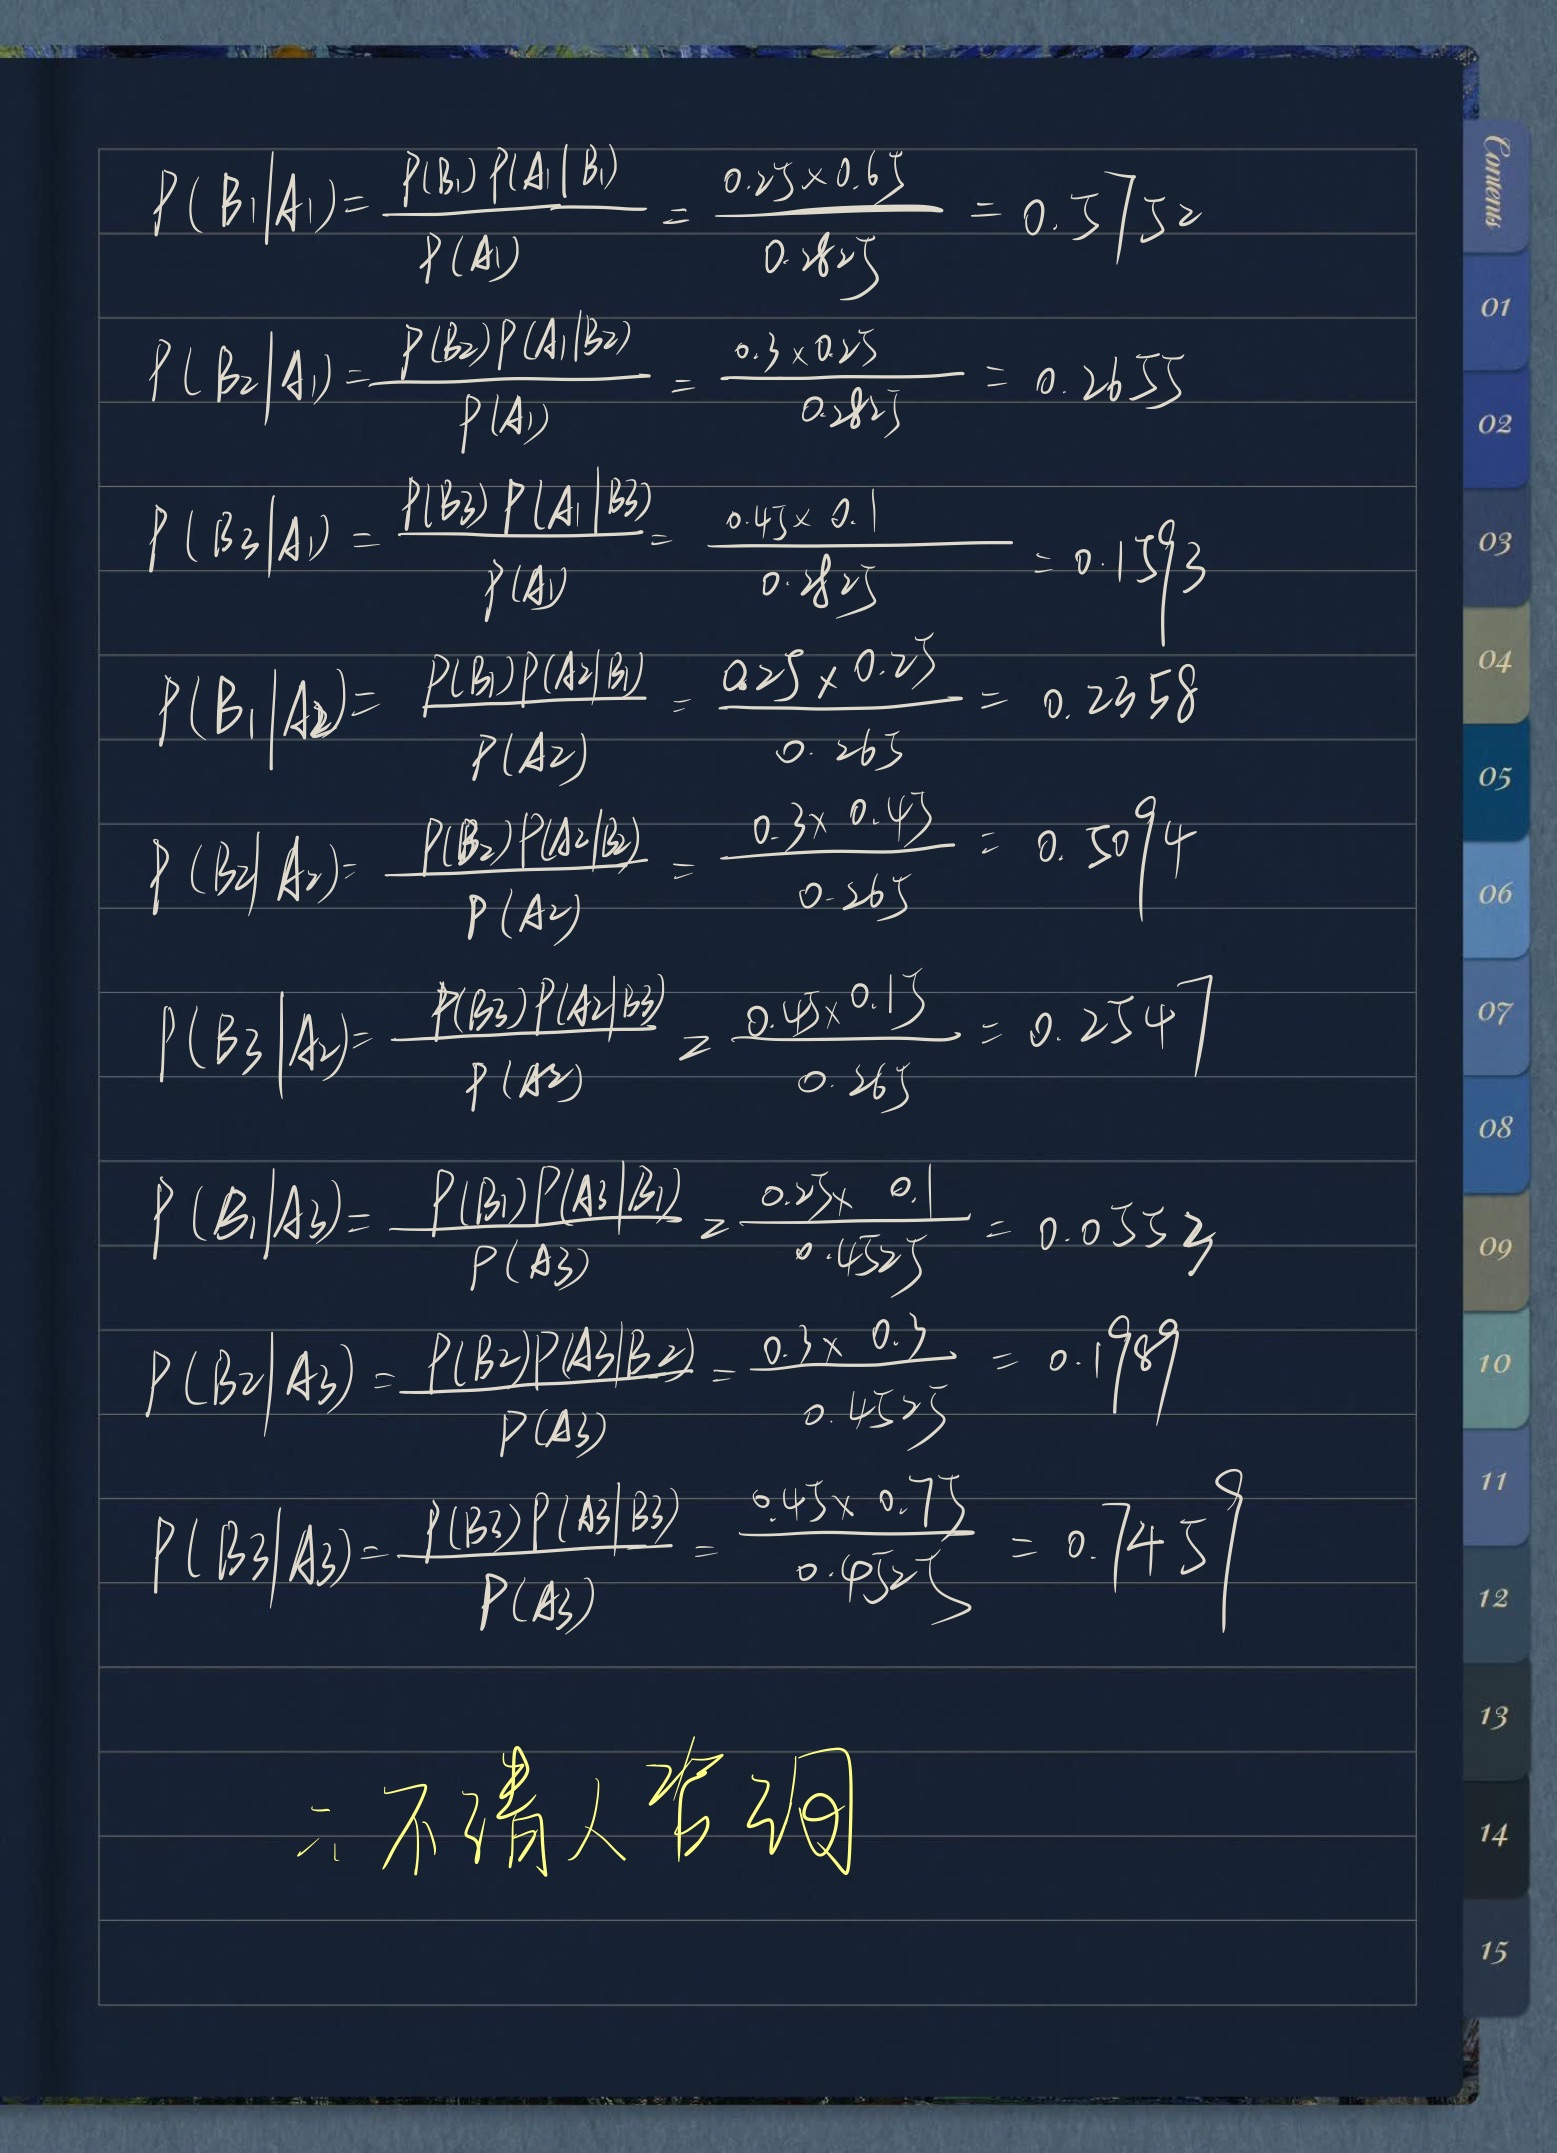 P(B1|A1)= P(B1)P(A1|B1) / P(A1) = 0.25×0.65 / 0.2825 = 0.5752
P(B2|A1)= P(B2)P(A1|B2) / P(A1) = 0.3×0.25 / 0.2825 = 0.2655
P(B3|A1)= P(B3)P(A1|B3) / P(A1) = 0.45×0.1 / 0.2825 = 0.1593
P(B1|A2)= P(B1)P(A2|B1) / P(A2) = 0.25×0.25 / 0.265 = 0.2358
P(B2|A2)= P(B2)P(A2|B2) / P(A2) = 0.3×0.45 / 0.265 = 0.5094
P(B3|A2)= P(B3)P(A2|B3) / P(A2) = 0.45×0.15 / 0.265 = 0.2547
P(B1|A3)= P(B1)P(A3|B1) / P(A3) = 0.25×0.1 / 0.4525 = 0.0552
P(B2|A3)= P(B2)P(A3|B2) / P(A3) = 0.3×0.3 / 0.4525 = 0.1989
P(B3|A3)= P(B3)P(A3|B3) / P(A3) = 0.45×0.75 / 0.4525 = 0.7459
∴不请人咨询
Contents
01
02
03
04
05
06
07
08
09
10
11
12
13
14
15